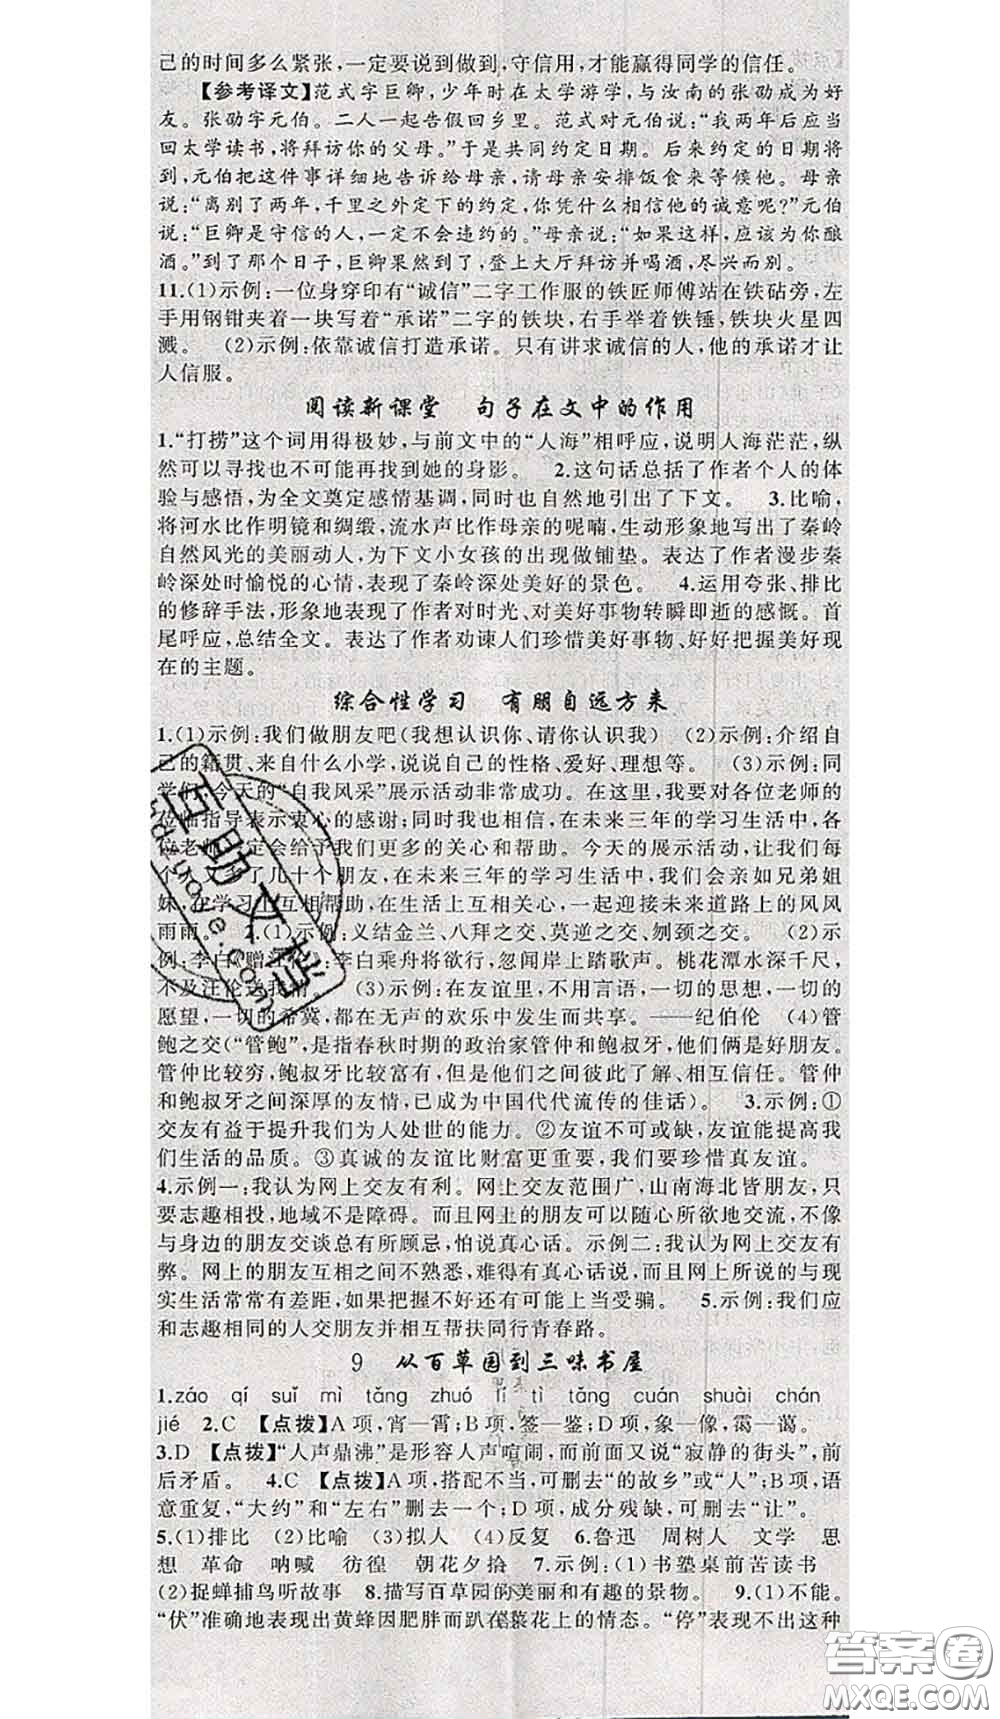 己的时间多么紧张,一定要说到做到,守信用,才能赢得同学的信任。
【参考译文】范式字巨卿,少年时在太学游学,与汝南的张劭成为好
友。张劭字元伯。二人一起告假回乡里。范式对元伯说:“我两年后应当
回太学读书,将拜访你的父母。”于是共同约定日期。后来约定的日期将
到,元伯把这件事详细地告诉给母亲,请母亲安排饭食来等候他。母亲
说:“离别了两年,千里之外定下的约定,你凭什么相信他的诚意呢?”元伯
说:“巨卿是守信的人,一定不会违约的。”母亲说:“如果这样,应该为你酿
酒。”到了那个日子,巨卿果然到了,登上大厅拜访并喝酒,尽兴而别。
11.(1)示例:一位身穿印有“诚信”二字工作服的铁匠师傅站在铁砧旁,左
手用钢钳夹着一块写着“承诺”二字的铁块,右手举着铁锤,铁块火星四
溅。 (2)示例:依靠诚信打造承诺。只有讲求诚信的人,他的承诺才让
人信服。
阅读新课堂 句子在文中的作用
1.“打捞”这个词用得极妙,与前文中的“人海”相呼应,说明人海茫茫,纵
然可以寻找也不可能再找到她的身影。 2.这句话总括了作者个人的体
验与感悟,为全文奠定感情基调,同时也自然地引出了下文。 3.比喻,
将河水比作明镜和绸缎,流水声比作母亲的呢喃,生动形象地写出了秦岭
自然风光的美丽动人,为下文小女孩的出现做铺垫。表达了作者漫步秦
岭深处时愉悦的心情,表现了秦岭深处美好的景色。 4.运用夸张、排比
的修辞手法,形象地表现了作者对时光、对美好事物转瞬即逝的感慨。首
尾呼应,总结全文。表达了作者劝谏人们珍惜美好事物、好好把握美好现
在的主题。
综合性学习 有朋自远方来
1.(1)示例:我们做朋友吧(我想认识你、请你认识我) (2)示例:介绍自
己的籍贯、来自什么小学,说说自己的性格、爱好、理想等。 (3)示例:同
学们,今天的“自我风采”展示活动非常成功。在这里,我要对各位老师的
位临指导表示衷心的感谢;同时我也相信,在未来三年的学习生活中,各
位老师一定会给予我们更多的关心和帮助。今天的展示活动,让我们每
个人又多了几十个朋友,在未来三年的学习生活中,我们会亲如兄弟姐
妹,在学习上互相帮助,在生活上互相关心,一起迎接未来道路上的风风
雨雨。 2.(1)示例:义结金兰、八拜之交、莫逆之交、刎颈之交。 (2)示
例:李白《赠汪伦》:李白乘舟将欲行,忽闻岸上踏歌声。桃花潭水深千尺,
不及汪伦送我情。 (3)示例:在友谊里,不用言语,一切的思想,一切的
愿望,一切的希冀,都在无声的欢乐中发生而共享。——纪伯伦 (4)管
鲍之交(“管鲍”,是指春秋时期的政治家管仲和鲍叔牙,他们俩是好朋友。
管仲比较穷,鲍叔牙比较富有,但是他们之间彼此了解、相互信任。管仲
和鲍叔牙之间深厚的友情,已成为中国代代流传的佳话)。 3.示例:①
交友有益于提升我们为人处世的能力。②友谊不可或缺,友谊能提高我
们生活的品质。③真诚的友谊比财富更重要,我们要珍惜真友谊。
4.示例一:我认为网上交友有利。网上交友范围广,山南海北皆朋友,只
要志趣相投,地域不是障碍。而且网上的朋友可以随心所欲地交流,不像
与身边的朋友交谈总有所顾忌,怕说真心话。示例二:我认为网上交友有
弊。网上的朋友互相之间不熟悉,难得有真心话说,而且网上所说的与现
实生活常常有差距,如果把握不好还有可能上当受骗。 5.示例:我们应
和志趣相同的人交朋友并相互帮扶同行青春路。
9 从百草园到三味书屋
1.záo qí suǐ mì tǎng zhuó lǐ tì tǎng cuán shuài chán
jié 2.C 【点拨】A项,宵—霄;B项,签—鉴;D项,象—像,霭—蔼。
3.D 【点拨】“人声鼎沸”是形容人声喧闹,而前面又说“寂静的街头”,前
后矛盾。 4.C 【点拨】A项,搭配不当,可删去“的故乡”或“人”;B项,语
意重复,“大约”和“左右”删去一个;D项,成分残缺,可删去“让”。
5.(1)排比 (2)比喻 (3)拟人 (4)反复 6.鲁迅 周树人 文学 思
想 革命 呐喊 彷徨 朝花夕拾 7.示例:(1)书塾桌前苦读书
(2)捉蝉捕鸟听故事 8.描写百草园的美丽和有趣的景物。 9.(1)不能。
“伏”准确地表现出黄蜂因肥胖而趴在菜花上的情态。“停”表现不出这种
互助文档
答案圈
MXQE.COM